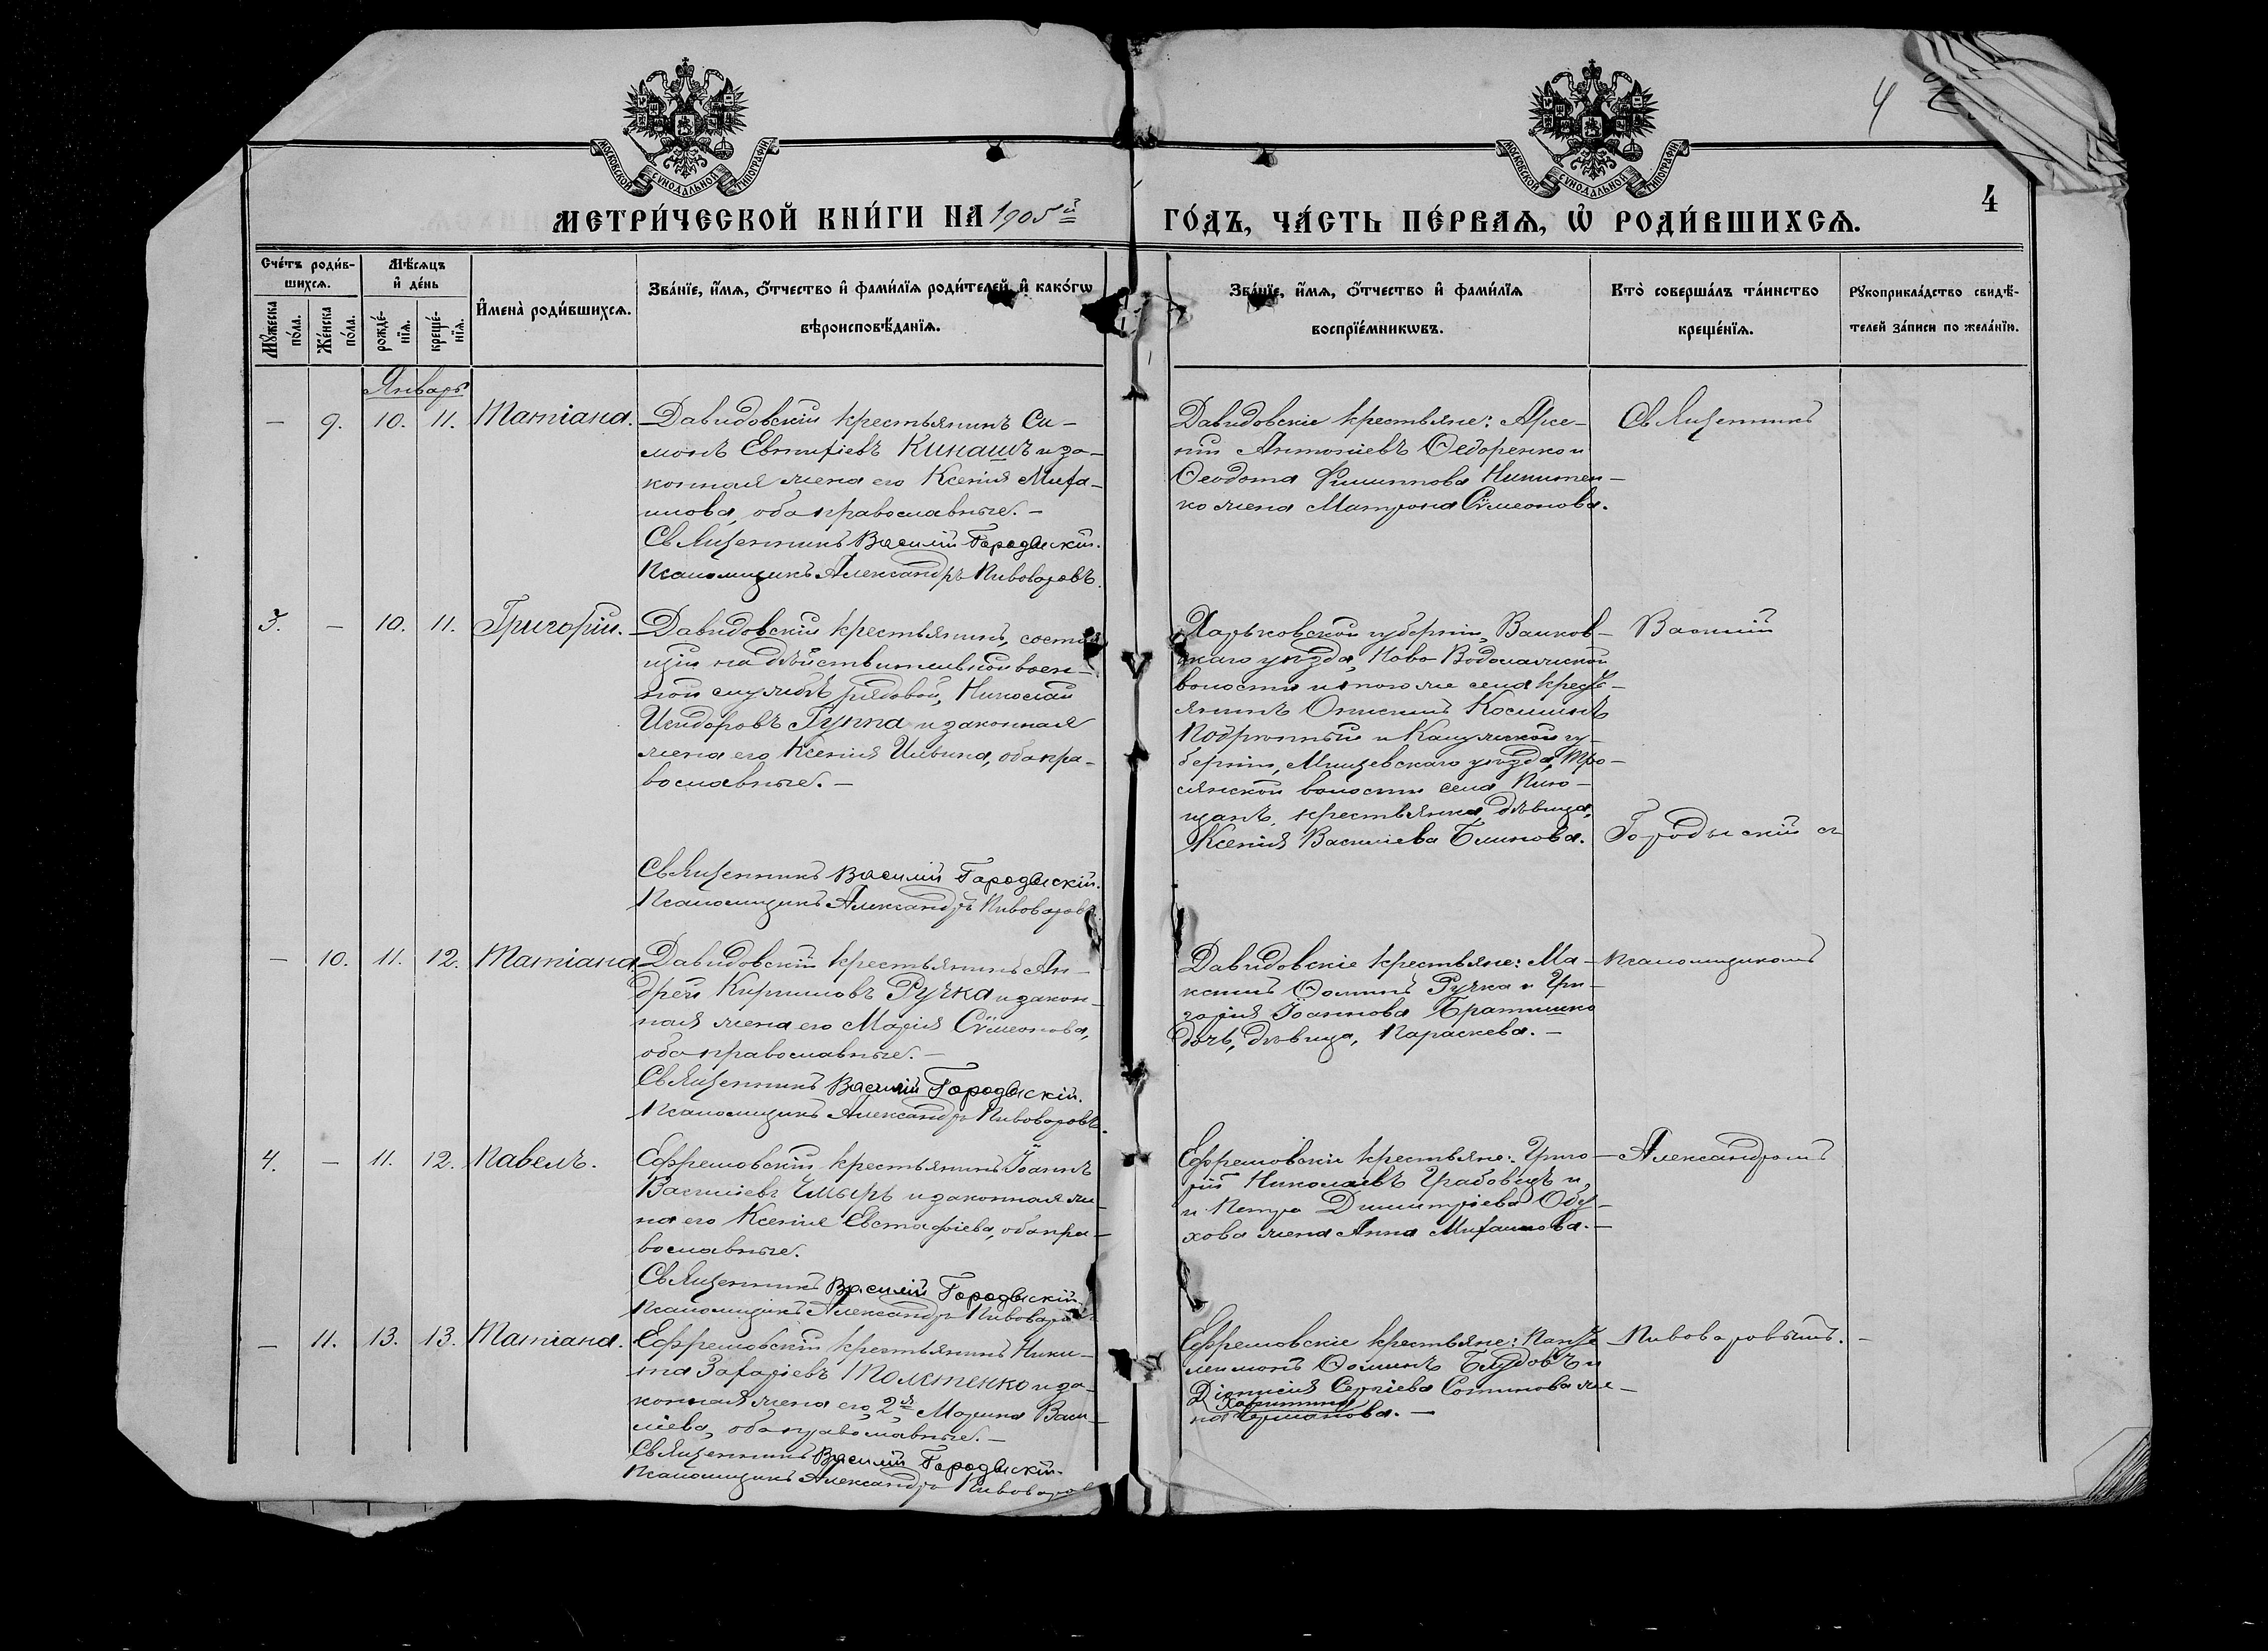 4
МОСКОВСКОЙ СѴНОДАЛЬНОЙ ТИПОГРАФІИ
МОСКОВСКОЙ СѴНОДАЛЬНОЙ ТИПОГРАФІИ
4
МЕТРИ́ЧЕСКОЙ КНИ́ГИ НА 1905й
ГО́ДЪ, ЧА́СТЬ ПЕ́РВАѦ, Ѽ РОДИ́ВШИХСѦ.
Сче́тъ роди́в-
шихсѧ.
Мꙋ́жеска
по́ла.
Же́нска
по́ла.
Мѣ́сѧцъ
и҆ де́нь
рожде́-
нїѧ.
креще́-
нїѧ.
И҆мена̀ роди́вшихсѧ.
Зва́нїе, и҆́мѧ, ѻ҆́тчество и҆ фами́лїѧ роди́телей, и҆ како́гѡ
вѣроисповѣ́данїѧ.
Зва́нїе, и҆́мѧ, ѻ҆́тчество и҆ фами́лїѧ
воспрїе́мникѡвъ.
Кто̀ соверша́лъ та́инство
креще́нїѧ.
Рꙋкоприкла́дство свидѣ́-
телей за́писи по жела́нїю.
Январь
— 9. 10. 11. Татіана.
Давидовскій крестьянинъ Си-
монъ Евтихіевъ Кинашъ и за-
конная жена его Ксенія Миха-
илова, оба православные. —
Священникъ Василій Городыскій.
Псаломщикъ Александръ Пивоваровъ.
Давидовскіе крестьяне: Арсе-
ній Антоніевъ Ѳедоренко и
Ѳеодота Филиппова Никитен-
ко жена Матрона Сѵмеонова.
Священникъ
3. — 10. 11. Григорій.
Давидовскій крестьянинъ, состоя
щій на дѣйствительной воен-
ной службѣ рядовой, Николай
Исидоровъ Гуппа и законная
жена его Ксенія Ильина, оба пра-
вославные. —
Священникъ Василій Городыскій.
Псаломщикъ Александръ Пивоваровъ.
Харьковской губерніи, Валков-
скаго уѣзда, Ново-Водолажской
волости и того же села крестъ-
янинъ Онисимъ Косминъ
и Калужской гу-
берніи, Мищевскаго уѣзда,
волости села
щанъ, крестьянка, дѣвица,
Ксенія Васильева Блинова.
Василій
Городыскій съ
— 10. 11. 12. Татіана.
Давидовскій крестьянинъ Ан-
дрей Кирилловъ Ручка и закон-
ная жена его Марія Сѵмеонова,
оба православные. —
Священникъ Василій Городыскій.
Псаломщикъ Александръ Пивоваровъ.
Давидовскіе крестьяне: Ма-
ксимъ Ѳоминъ Ручка и Гри-
горія Іоаннова Братишко
дочь, дѣвица, Параскева. —
псаломщикомъ
4. — 11. 12. Павелъ.
Ефремовскій крестьянинъ Іоаннъ
Васильевъ Чмырь и законная же
на его Ксенія Евстафіева, оба пра-
вославные.
Священникъ Василій Городыскій.
Псаломщикъ Александръ Пивоваровъ
Ефремовскіе крестьяне: Григо-
рій Николаевъ Грабовецъ и
и Петра Димитріева Обу-
хова жена Анна Михаилова. —
Александромъ
— 11. 13. 13. Татіана.
Ефремовскій крестьянинъ Ники-
та Захаріевъ Толстенко и за-
конная жена его, 2я, Марина Васи-
ліева, оба православные. —
Священникъ Василій Городыскій.
Псаломщикъ Александръ Пивоваров
Ефремовскіе крестьяне: Панте
леимонъ Ѳоминъ Блудовъ и
Діонисія Сергіева Сотникова же-
Харитина
на Германова. —
Пивоваровымъ. —